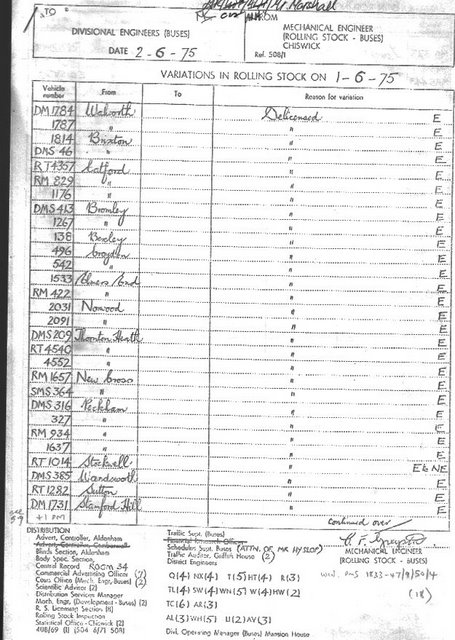 TO
FROM
DIVISIONAL ENGINEERS (BUSES)
DATE 2-6-75
MECHANICAL ENGINEER
(ROLLING STOCK - BUSES)
CHISWICK
Ref. 508/1
VARIATIONS IN ROLLING STOCK ON 1-6-75
Vehicle number From To Reason for variation
DM 1784 Walworth Delicensed E
1787 " " E
1814 Brixton " E
DMS 46 " " E
RT 4357 Catford " E
RM 829 " " E
1176 " " E
DMS 413 Bromley " E
1267 " " E
138 Bexley " E
496 Croydon " E
542 " " E
1533 Elmers End " E
RM 422 " " E
2031 Norwood " E
2091 " " E
DMS 209 Thornton Heath " E
RT 4540 " " E
4552 " " E
RM 1657 New Cross " E
SMS 364 " " E
DMS 316 Peckham " E
327 " " E
RM 934 " " E
1637 " " E
RT 1014 Stockwell " E & NE
DMS 385 Wandsworth " E
RT 1282 Sutton " E
DM 1731 Stamford Hill " E
continued over
DISTRIBUTION
Advert. Controller, Aldenham
Blinds Section, Aldenham
Body Spec. Section,
Central Record ROOM 34
Commercial Advertising Officer (7)
Cours Office (Mech. Engr. Buses) (2)
Scientific Adviser (2)
Distribution Services Manager
Mech. Engr. (Development - Buses) (2)
R. S. Licensing Section (8)
Rolling Stock Inspection
Statistical Office - Chiswick (2)
Traffic Supt. (Buses)
Financial Research Officer
Schedules Supt. Buses (ATTN. OF MR HYSLOP)
Traffic Auditor, Griffith House (2)
District Engineers
Q(4) NX(4) T(5) HT(4) R(3)
TL(4) SW(4) WN(5) W(4) HW(2)
TC(6) AR(3)
AL(3) WH(5) U(2) AV(3)
Divl. Operating Manager (Buses) Mansion House
MECHANICAL ENGINEER
(ROLLING STOCK - BUSES)
(18)